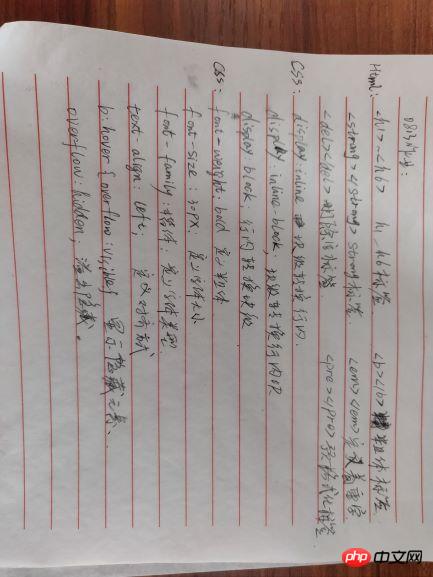 083作业:
Html: <h1>~<h6> h1-h6标签 <b></b> 粗体标签
<strong></strong> strong标签 <em></em>
<del></del> 删除线标签 <pre></pre> 预格式化标签
CSS: display inline 块级转换行内.
display inline-block: 块级转换行内块
display: block: 行内转换块级
CSS: font-weight: bold 定义粗体
font-size: 30px. 定义字体大小
font-family: 楷体: 定义字体类型.
text align: left; 定义对齐方式
b:hover{overflow:visible} 显示隐藏元素、
overflow:hidden; 溢出隐藏。
php中文网